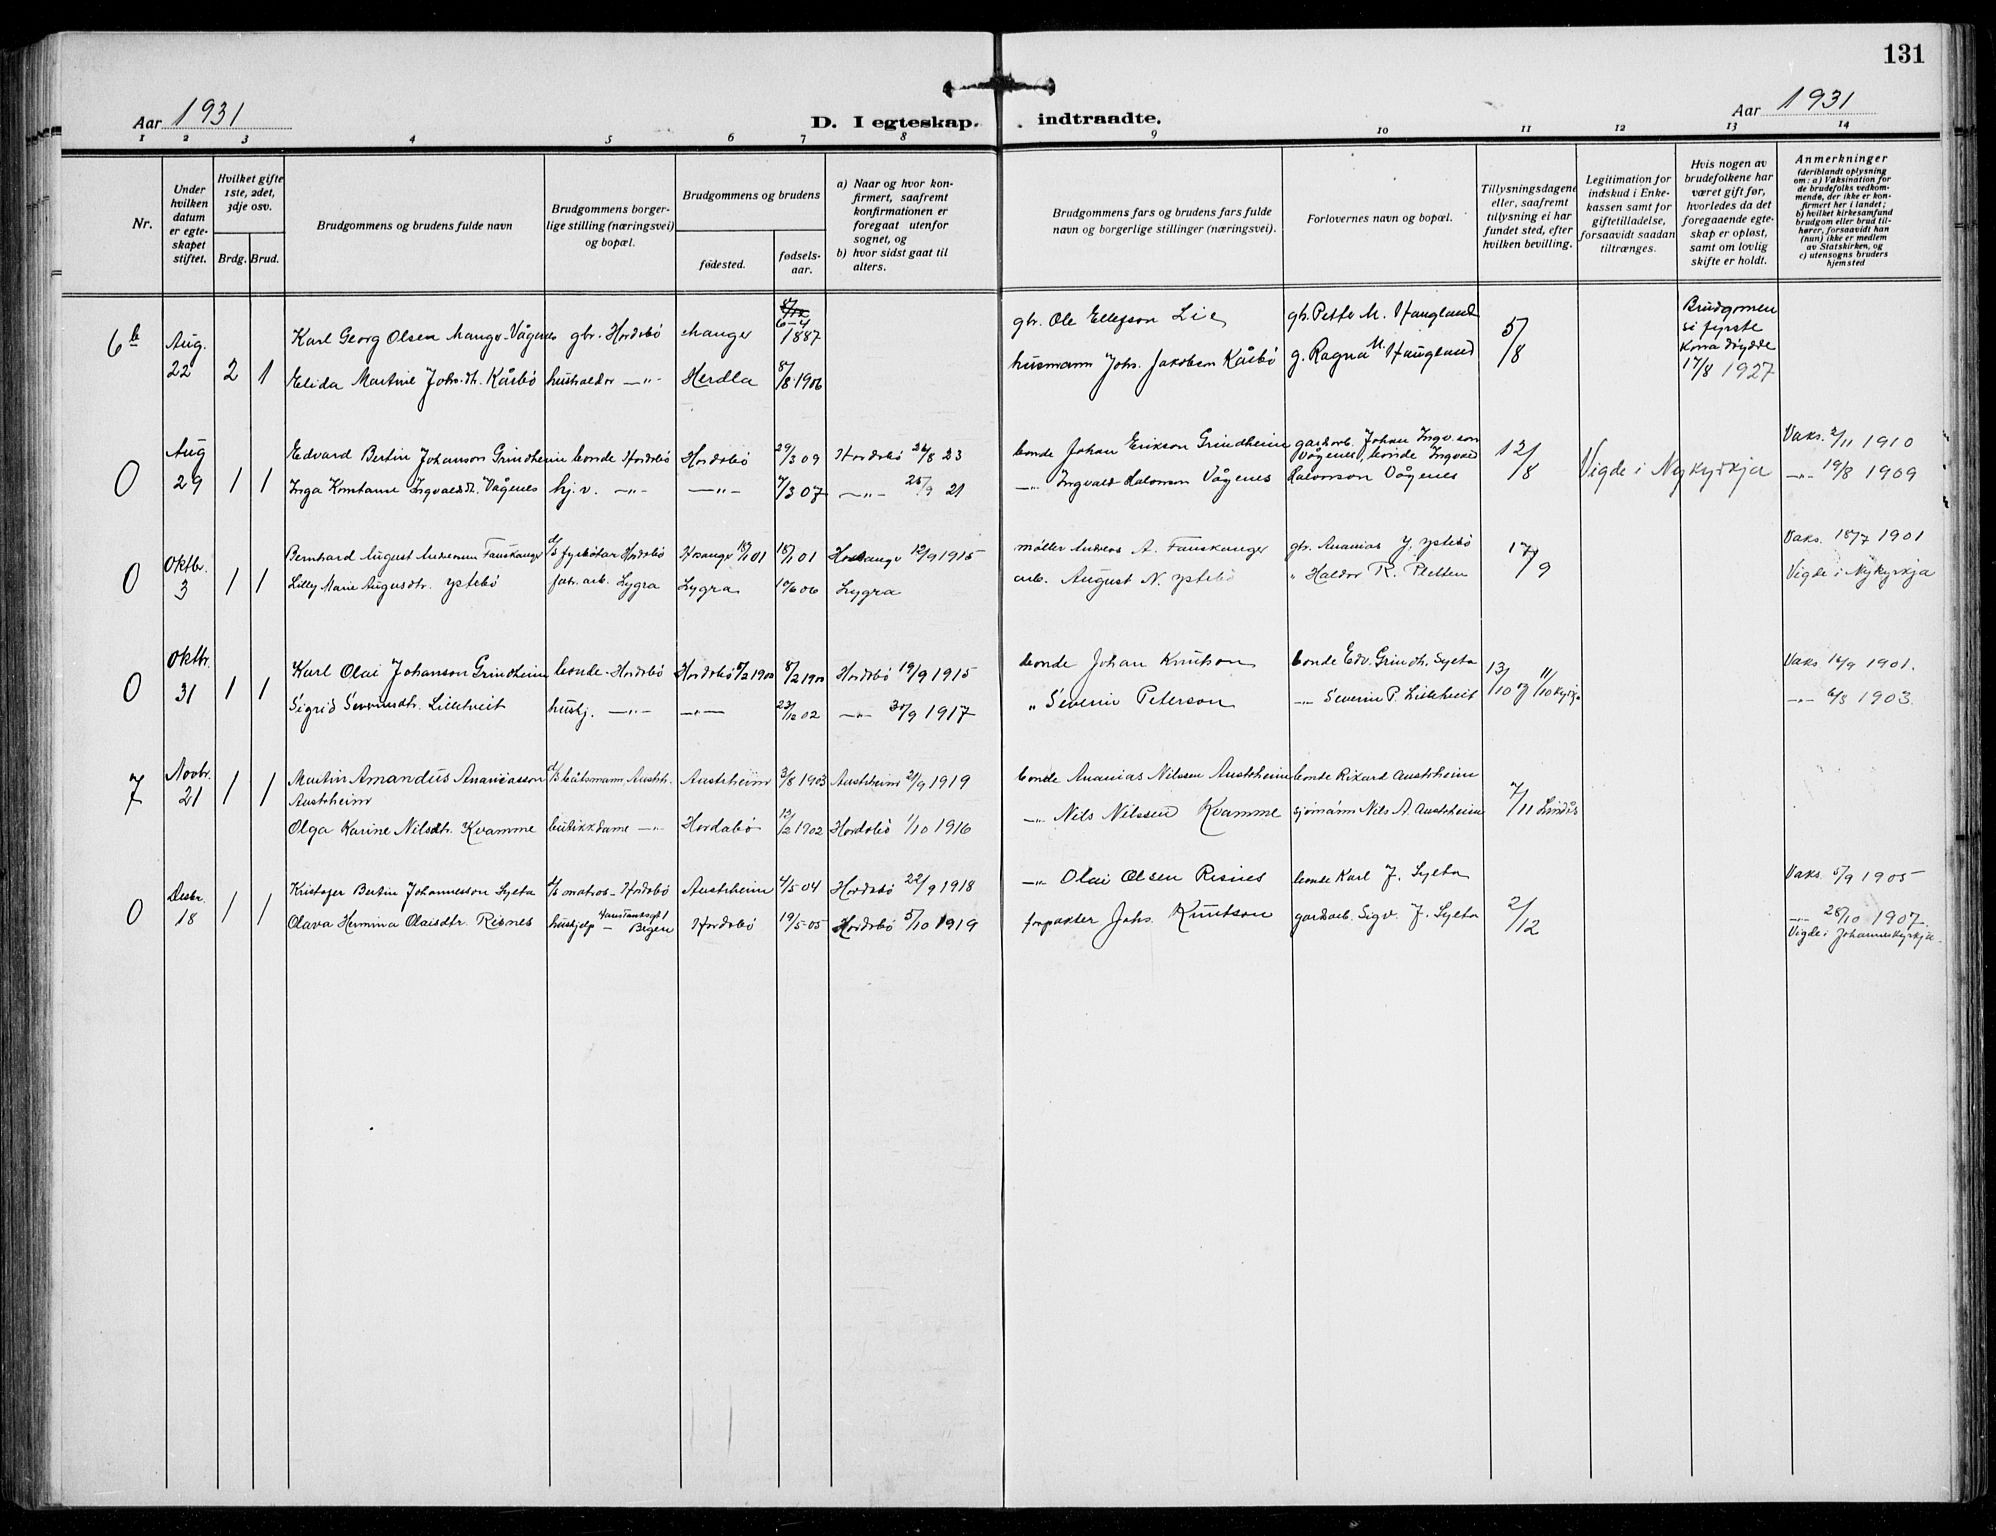 131
Aar 1931
D. I egteskap.
indtraadte.
Aar 1931
1 2 3 4 5 6 7 8 9 10 11 12 13 14
Nr.
Under hvilken datum er egteskapet stiftet.
Hvilket gifte 1ste, 2det, 3dje osv.
Brdg. Brud.
Brudgommens og brudens fulde navn
Brudgommens borgerlige stilling (næringsvei) og bopæl.
Brudgommens og brudens
fødested.
fødselsaar.
a) Naar og hvor konfirmert, saafremt konfirmationen er foregaat utenfor sognet, og
b) hvor sidst gaat til alters.
Brudgommens fars og brudens fars fulde navn og borgerlige stillinger (næringsvei).
Forlovernes navn og bopæl.
Tillysningsdagene eller, saafremt tillysning ei har fundet sted, efter hvilken bevilling.
Legitimation for indskud i Enkekassen samt for giftetilladelse, forsaavidt saadan tiltrænges.
Hvis nogen av brudefolkene har været gift før, hvorledes da det foregaaende egteskap er opløst, samt om lovlig skifte er holdt.
Anmerkninger (deriblandt oplysning om: a) Vaksination for de brudefolks vedkommende, der ikke er konfirmert her i landet; b) hvilket kirkesamfund brudgom eller brud tilhører, forsaavidt han (hun) ikke er medlem av Statskirken, og c) utensogns bruders hjemsted
6 b Aug. 22 2 1
Karl Georg Olsen Mangr-Vågenes gbr. Hordabø Manger 6-4 1887
gbr. Ole Ellefson Lie
gbr. Petter M. Haugland
5/8
Brudgomen si fyrste kona døydde 17/8 1927
Elida Martine Johs.dtr. Kårbø hushaldr —"— Herdla 8/8-1906
husmann Johs. Jakobsen Kårbø
g. Ragna M. Haugland
0 Aug 29 1 1
Edvard Bertin Johanson Grindheim bonde Hordabø Hordabø 29/3 09 Hordabø 26/8 23
bonde Johan Erikson Grindheim
gardarb. Johan Ingv.son Vågenes, bonde Ingvald Halvorson Vågenes
12/8
Vigde i Nykyrkja
Vaks. 2/11 1910
Inga Konstanse Ingvaldsdt. Vågenes hj. v. —"— —"— 7/3 07 —"— 25/9 21
—"— Ingvald Halvorson Vågenes
—"— 19/8 1909
0 Oktbr. 3 1 1
Bernhard August Andersen Fanskanger d/s fyrbøtar Hordabø Hosanger 18/1 01 18/1 01 Hosanger 12/9 1915
møller Andreas A. Fanskanger
gbr. Ananias J. Ystebø
17/9
Vaks. 18/7 1901
Lilly Marie Augusdtr. Ystebø fabr. arb. Lygra Lygra 10/6 06 Lygra
arb. August N. Ystebø
" Haldor R. Pletten
Vigde i Nykyrkja
0 Oktbr. 31 1 1
Karl Olai Johanson Grindheim bonde - Hordabø Hordabø 8/2 1900 8/2 1900 Hordabø 19/9 1915
bonde Johan Knutson
bonde Edv. Grindh. Sylta
13/10 og 11/10 kyrkja
Vaks 16/9 1901.
Sigrid Severinsdtr. Lilletveit hushj. —"— —"— 23/12 02 —"— 30/9 1917
" Severin Peterson
—"— Severin P. Lilletveit
—"— 6/8 1903.
7 Novbr. 21 1 1
Martin Amandus Ananiasson Austrheim d/s båtsmann, Austrh. Austrheim 3/8 1903 Austrheim 21/9 1919
bonde Ananias Nilssen Austrheim
bonde Rikard Austrheim
7/11 Lindås
Olga Karine Nilsdtr. Kvamme butikkdame —"— Hordabø 12/2 1902 Hordabø 1/10 1916
—"— Nils Nilssen Kvamme
sjømann Nils A. Austrheim
0 Desbr. 18 1 1
Kristofer Bertin Johannesson Sylta d/s matros - Hordabø Austrheim 4/5-04 Hordabø 22/9 1918
—"— Olai Olsen Risnes
bonde Karl J. Sylta
2/12
Vaks. 5/9 1905
Olava Hermina Olaisdtr. Risnes hushjelp - Bergen Hordabø 19/5-05 Hordabø 5/10 1919
forpakter Johs. Knutson
gardarb. Sigv. J. Sylta
—"— 28/10 1907.
Vigde i Johanneskyrkja.